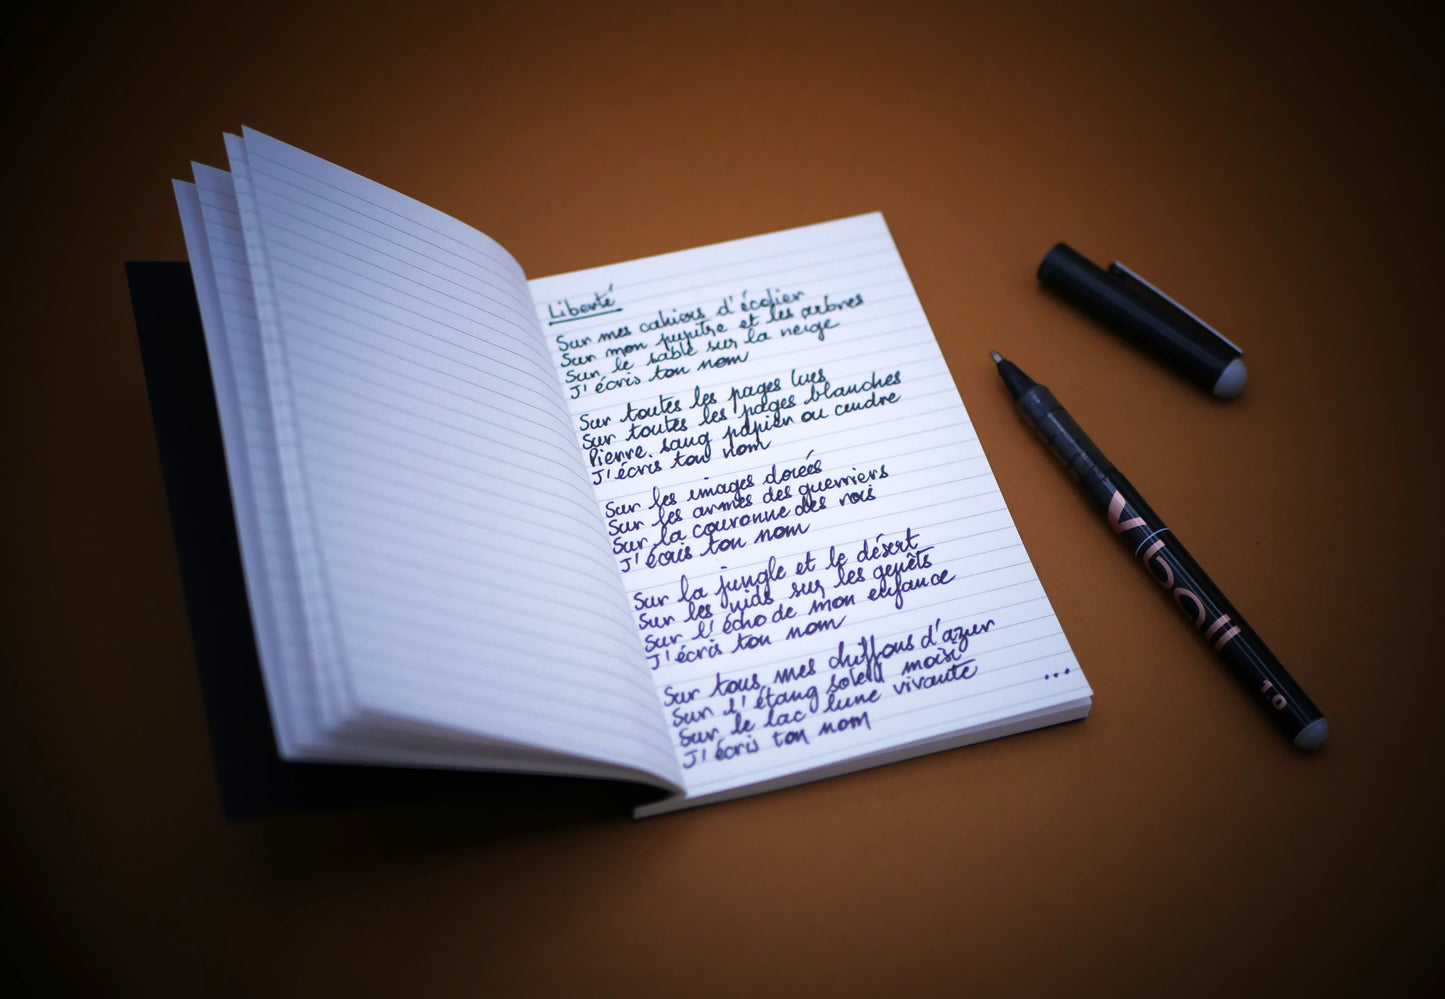 Liberté
Sur mes cahiers d'écolier
Sur mon pupitre et les arbres
Sur le sable sur la neige
J'écris ton nom
Sur toutes les pages lues
Sur toutes les pages blanches
Pierre sang papier ou cendre
J'écris ton nom
Sur les images dorées
Sur les armes des guerriers
Sur la couronne des rois
J'écris ton nom
Sur la jungle et le désert
Sur les nids sur les genêts
Sur l'écho de mon enfance
J'écris ton nom
Sur tous mes chiffons d'azur
Sur l'étang soleil moisi
Sur le lac lune vivante
J'écris ton nom
...
Vboll
1.0